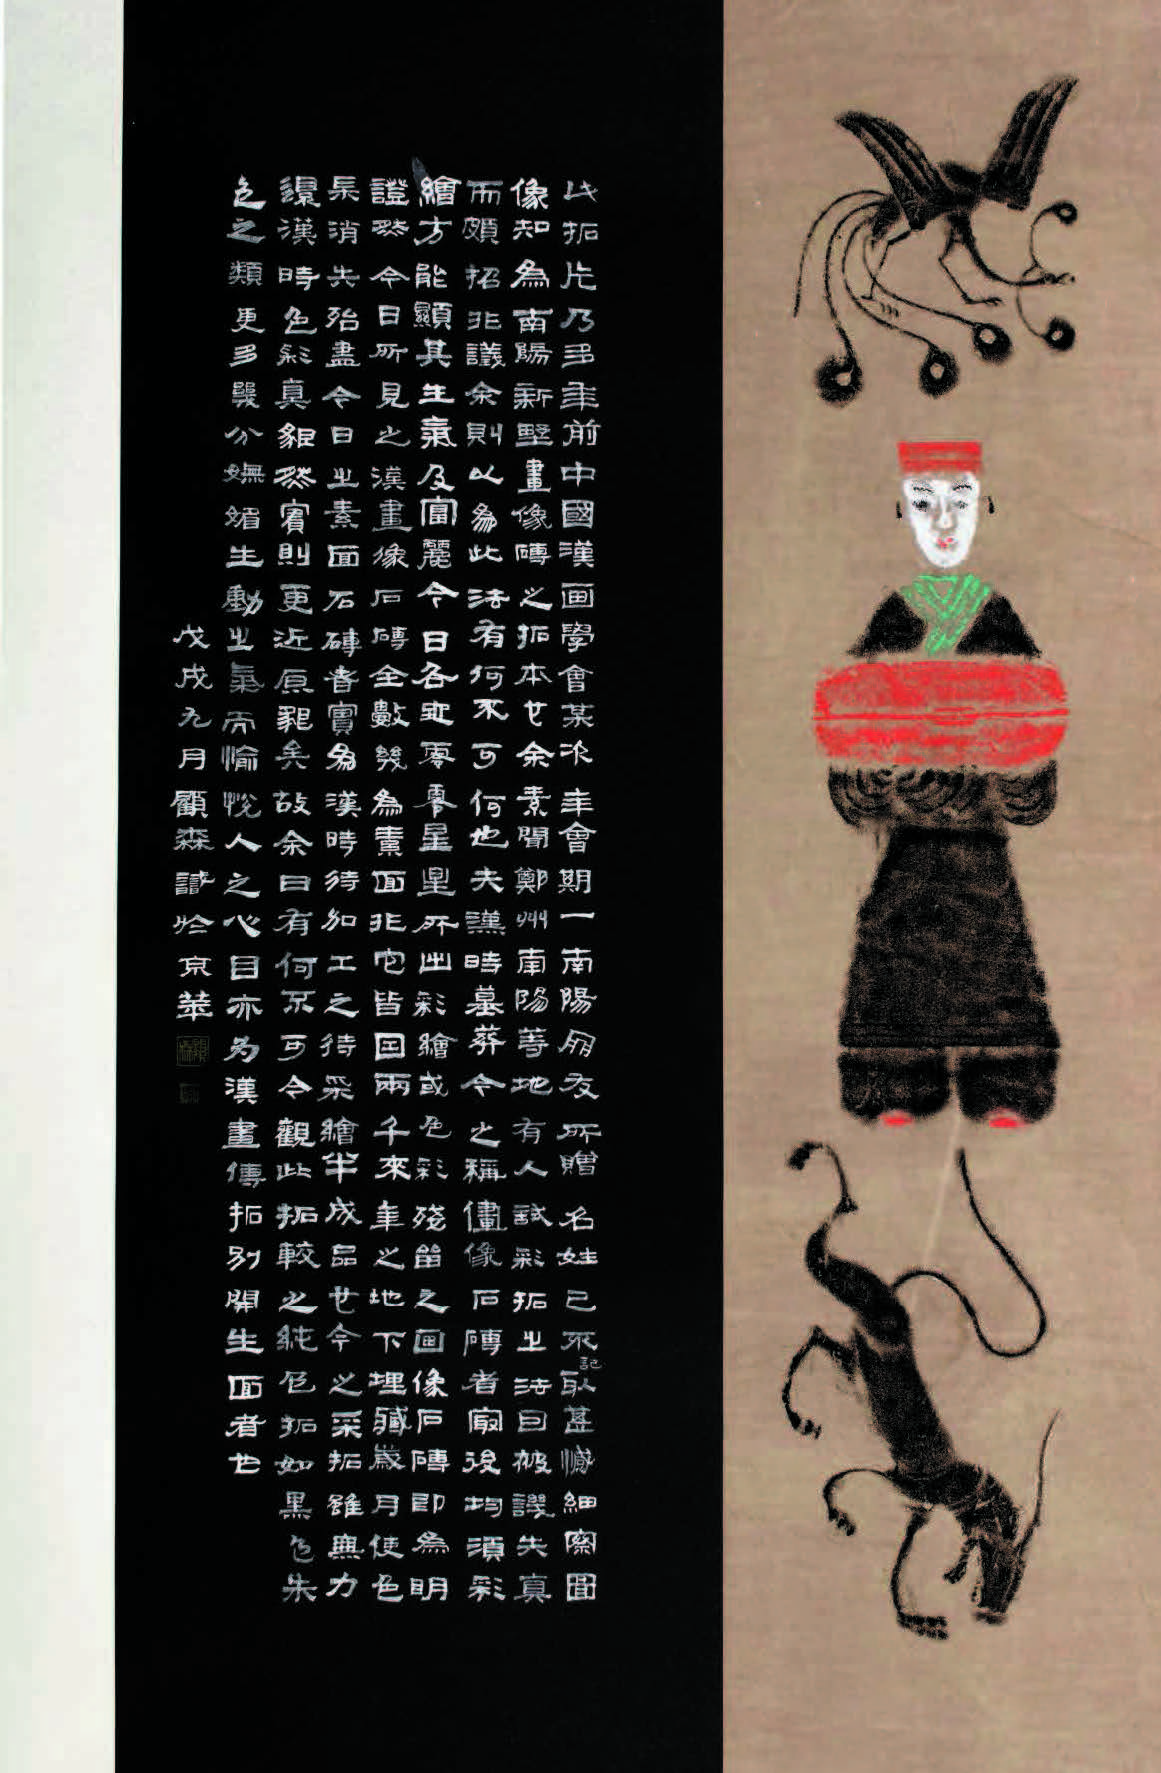 此拓片乃多年前中國漢画學會某次年會期一南陽朋友所贈名姓已不記取甚憾細察圖
像知為南陽新野畫像磚之拓本也余素聞鄭州南陽等地有人試彩拓之法曰被譏失真
而頗招非議余則以為此法有何不可何也夫漢時墓葬今之稱畫像石磚者最後均須彩
繪方能顯其生氣及富麗今日各地零零星星所出彩繪或色彩殘留之画像石磚即為明
證然今日所見之漢畫像石磚全數幾為素面非它皆因兩千來年之地下埋藏歲月使色
杲消失殆盡今日之素面石磚者實為漢時待加工之待采繪半成品也今之采拓雖無力
還漢時色彩真貌然實則更近原貌矣故余曰有何不可今觀此拓較之純色拓如黑色朱
色之類更多幾分嫵媚生動之氣而愉悅人之心目亦為漢畫傳拓別開生面者也
戊戌九月顧森識於京華